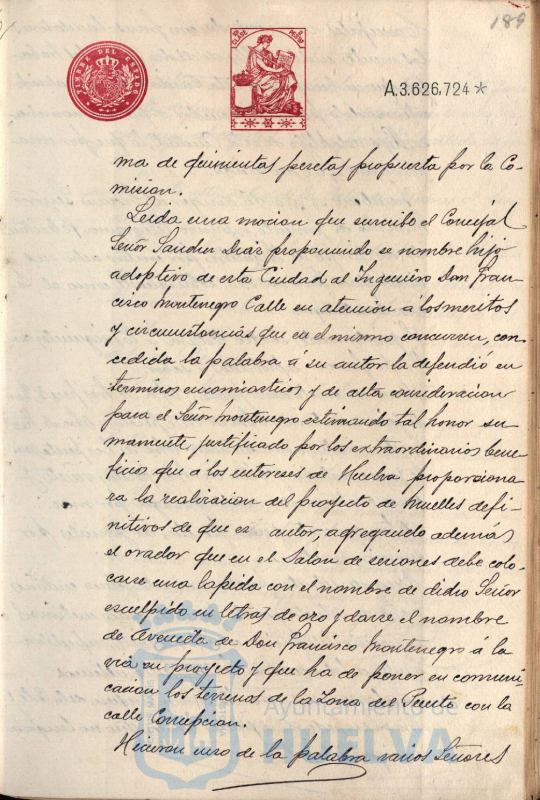 189
TIMBRE DEL ESTADO
A.3.626.724*
ma de quinientas pesetas propuesta por la Co-
mision.
Leida una mocion que suscribe el Concejal
Señor Sanchez Diaz proponiendo se nombre hijo
adoptivo de esta Ciudad al Ingeniero Don Fran-
cisco Montenegro Calle en atención á los meritos
y circunstancias que en el mismo concurren, con-
cedida la palabra á su autor la defendió en
terminos encomiasticos y de alta consideracion
para el Señor Montenegro estimando tal honor su
mamente justificado por los extraordinarios bene-
ficios que a los intereses de Huelva proporciona
ra la realizacion del proyecto de Muelles defi-
nitivos de que es autor, agregando además
el orador que en el Salon de sesiones debe colo-
carse una lapida con el nombre de dicho Señor
esculpido en letras de oro y darse el nombre
de Avenida de Don Francisco Montenegro á la
via en proyecto y que ha de poner en comuni-
cacion los terrenos de la Zona del Puerto con la
calle Concepcion.
Hicieron uso de la palabra varios Señores
Ayuntamiento de
HUELVA